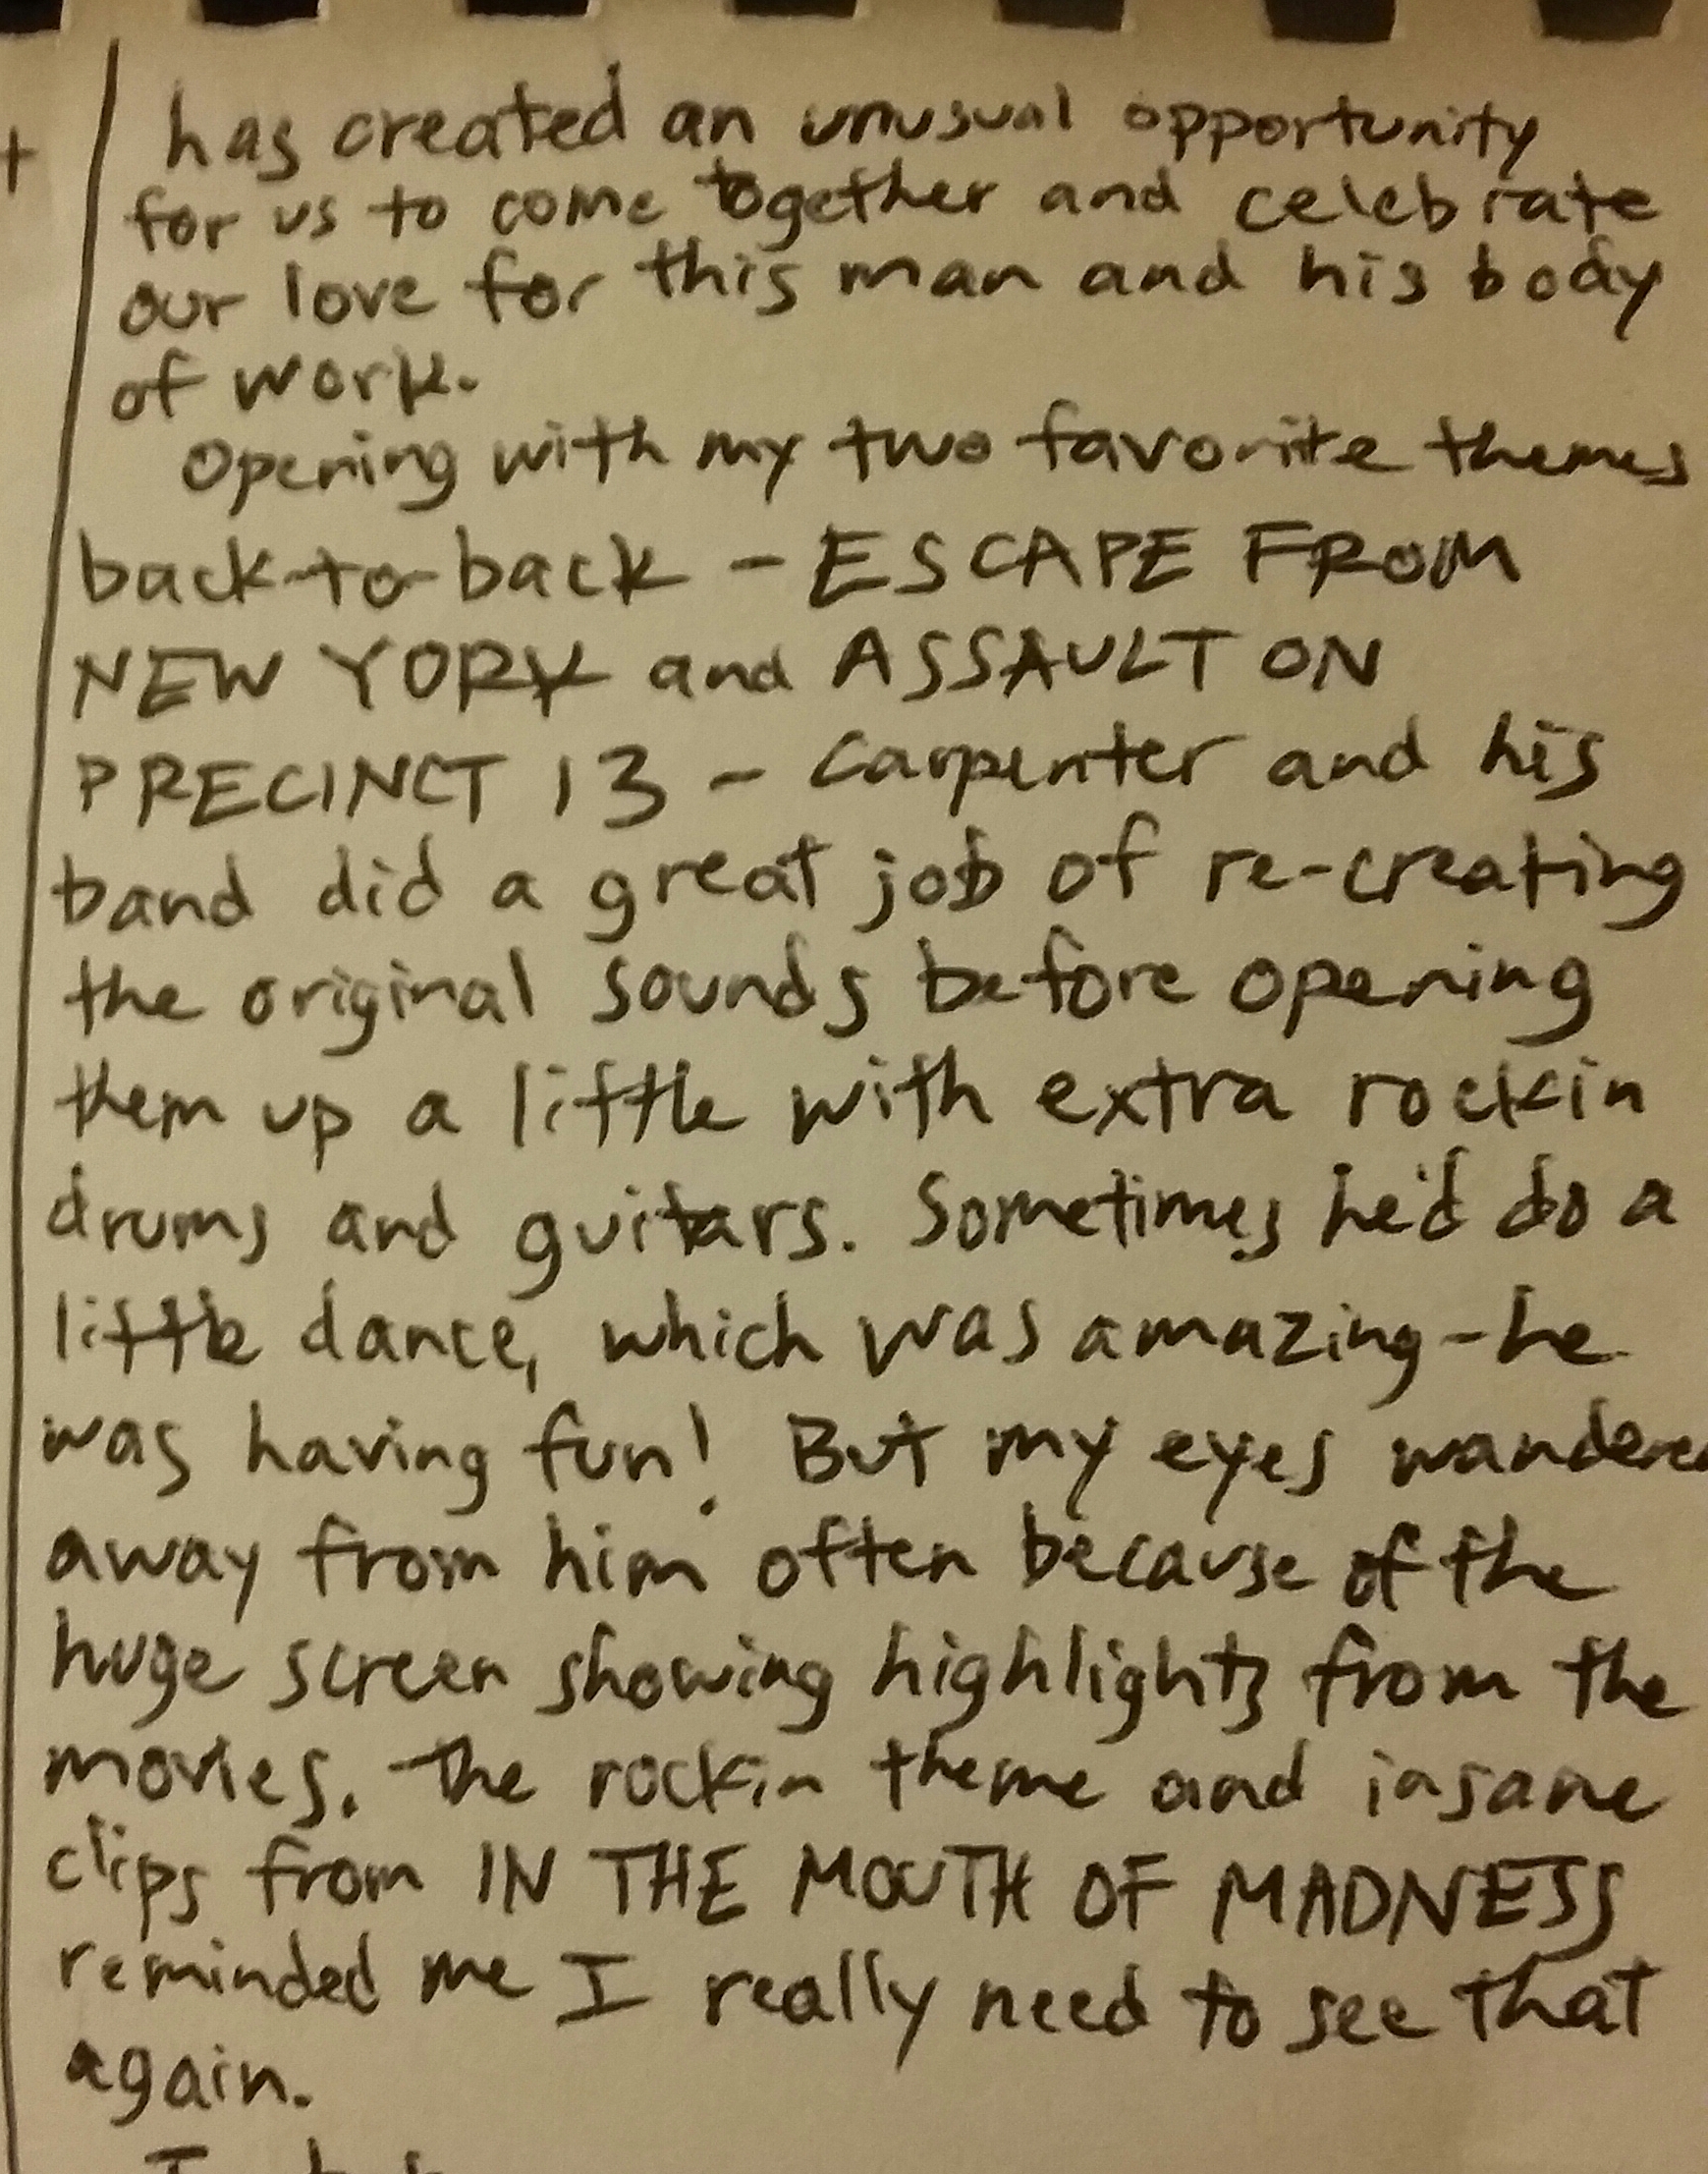 has created an unusual opportunity
for us to come together and celebrate
our love for this man and his body
of work.
Opening with my two favorite themes
back-to-back - ESCAPE FROM
NEW YORK and ASSAULT ON
PRECINCT 13 - Carpenter and his
band did a great job of re-creating
the original sounds before opening
them up a little with extra rockin
drums and guitars. Sometimes he'd do a
little dance, which was amazing - he
was having fun! But my eyes wandered
away from him often because of the
huge screen showing highlights from the
movies. The rockin theme and insane
clips from IN THE MOUTH OF MADNESS
reminded me I really need to see that
again.